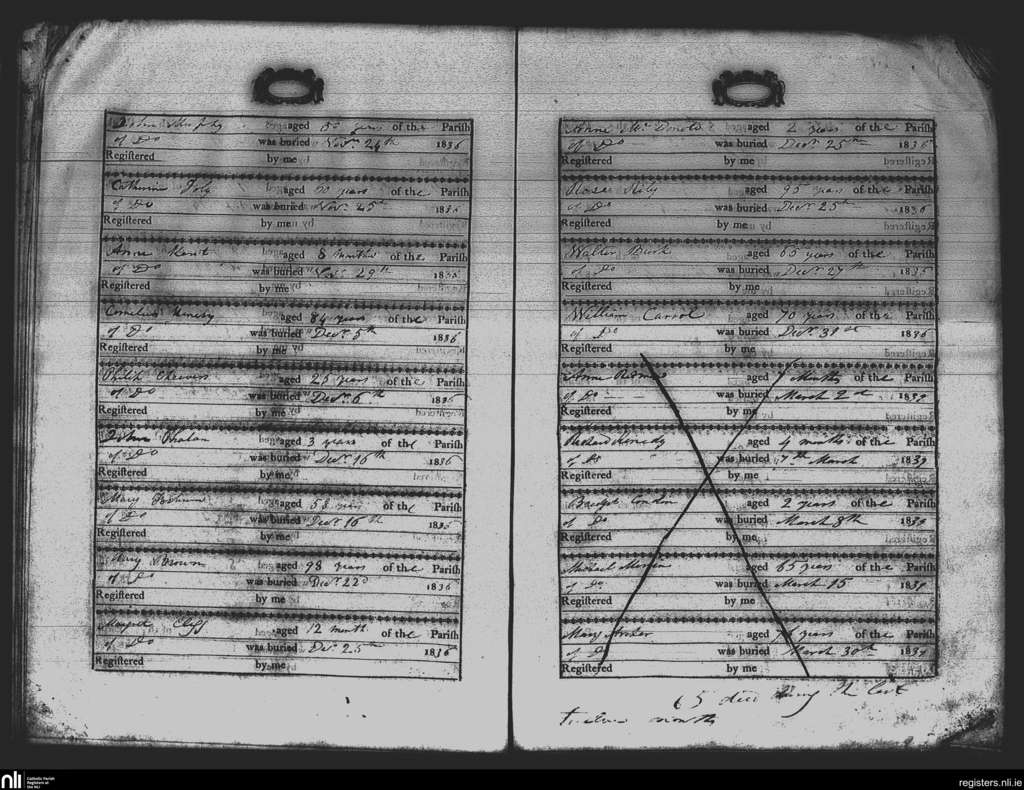 John Murphy aged 50 years of the Parish
of Do was buried Novr. 24th 1836
Registered by me
Catherine Foly aged 20 years of the Parish
of Do was buried Novr. 25th 1836
Registered by me
Anne Kent aged 8 months of the Parish
of Do was buried Novr. 29th 1836
Registered by me
Cornelius aged 84 years of the Parish
of Do was buried Decr. 5th 1836
Registered by me
aged 25 years of the Parish
of Do was buried Decr. 6th 1836
Registered by me
John Whalan aged 3 years of the Parish
of Do was buried Decr. 16th 1836
Registered by me
Mary aged 58 years of the Parish
of Do was buried Decr. 16th 1836
Registered by me
Mary Brown aged 98 years of the Parish
of Do was buried Decr. 22d 1836
Registered by me
Margret Cliff aged 12 month of the Parish
of Do was buried Dec. 25th 1836
Registered by me
Anne McDonald aged 2 years of the Parish
of Do was buried Decr. 25th 1836
Registered by me
Rose Rily aged 95 years of the Parish
of Do was buried Decr. 25th 1836
Registered by me
Walter Bush aged 65 years of the Parish
of Do was buried Decr. 27th 1836
Registered by me
William Carrol aged 70 years of the Parish
of Do was buried Decr. 31st 1836
Registered by me
Anne aged Months of the Parish
of Do was buried March 2d 1839
Registered by me
Richard Kenedy aged 4 months of the Parish
of Do was buried 7th March 1839
Registered by me
Condon aged 2 years of the Parish
of Do was buried March 8th 1839
Registered by me
Michael aged 65 years of the Parish
of Do was buried March 15 1839
Registered by me
Mary aged years of the Parish
of Do was buried March 30th 1839
Registered by me
65 died during the last
twelve months
nli Catholic Parish Registers at the NLI
registers.nli.ie